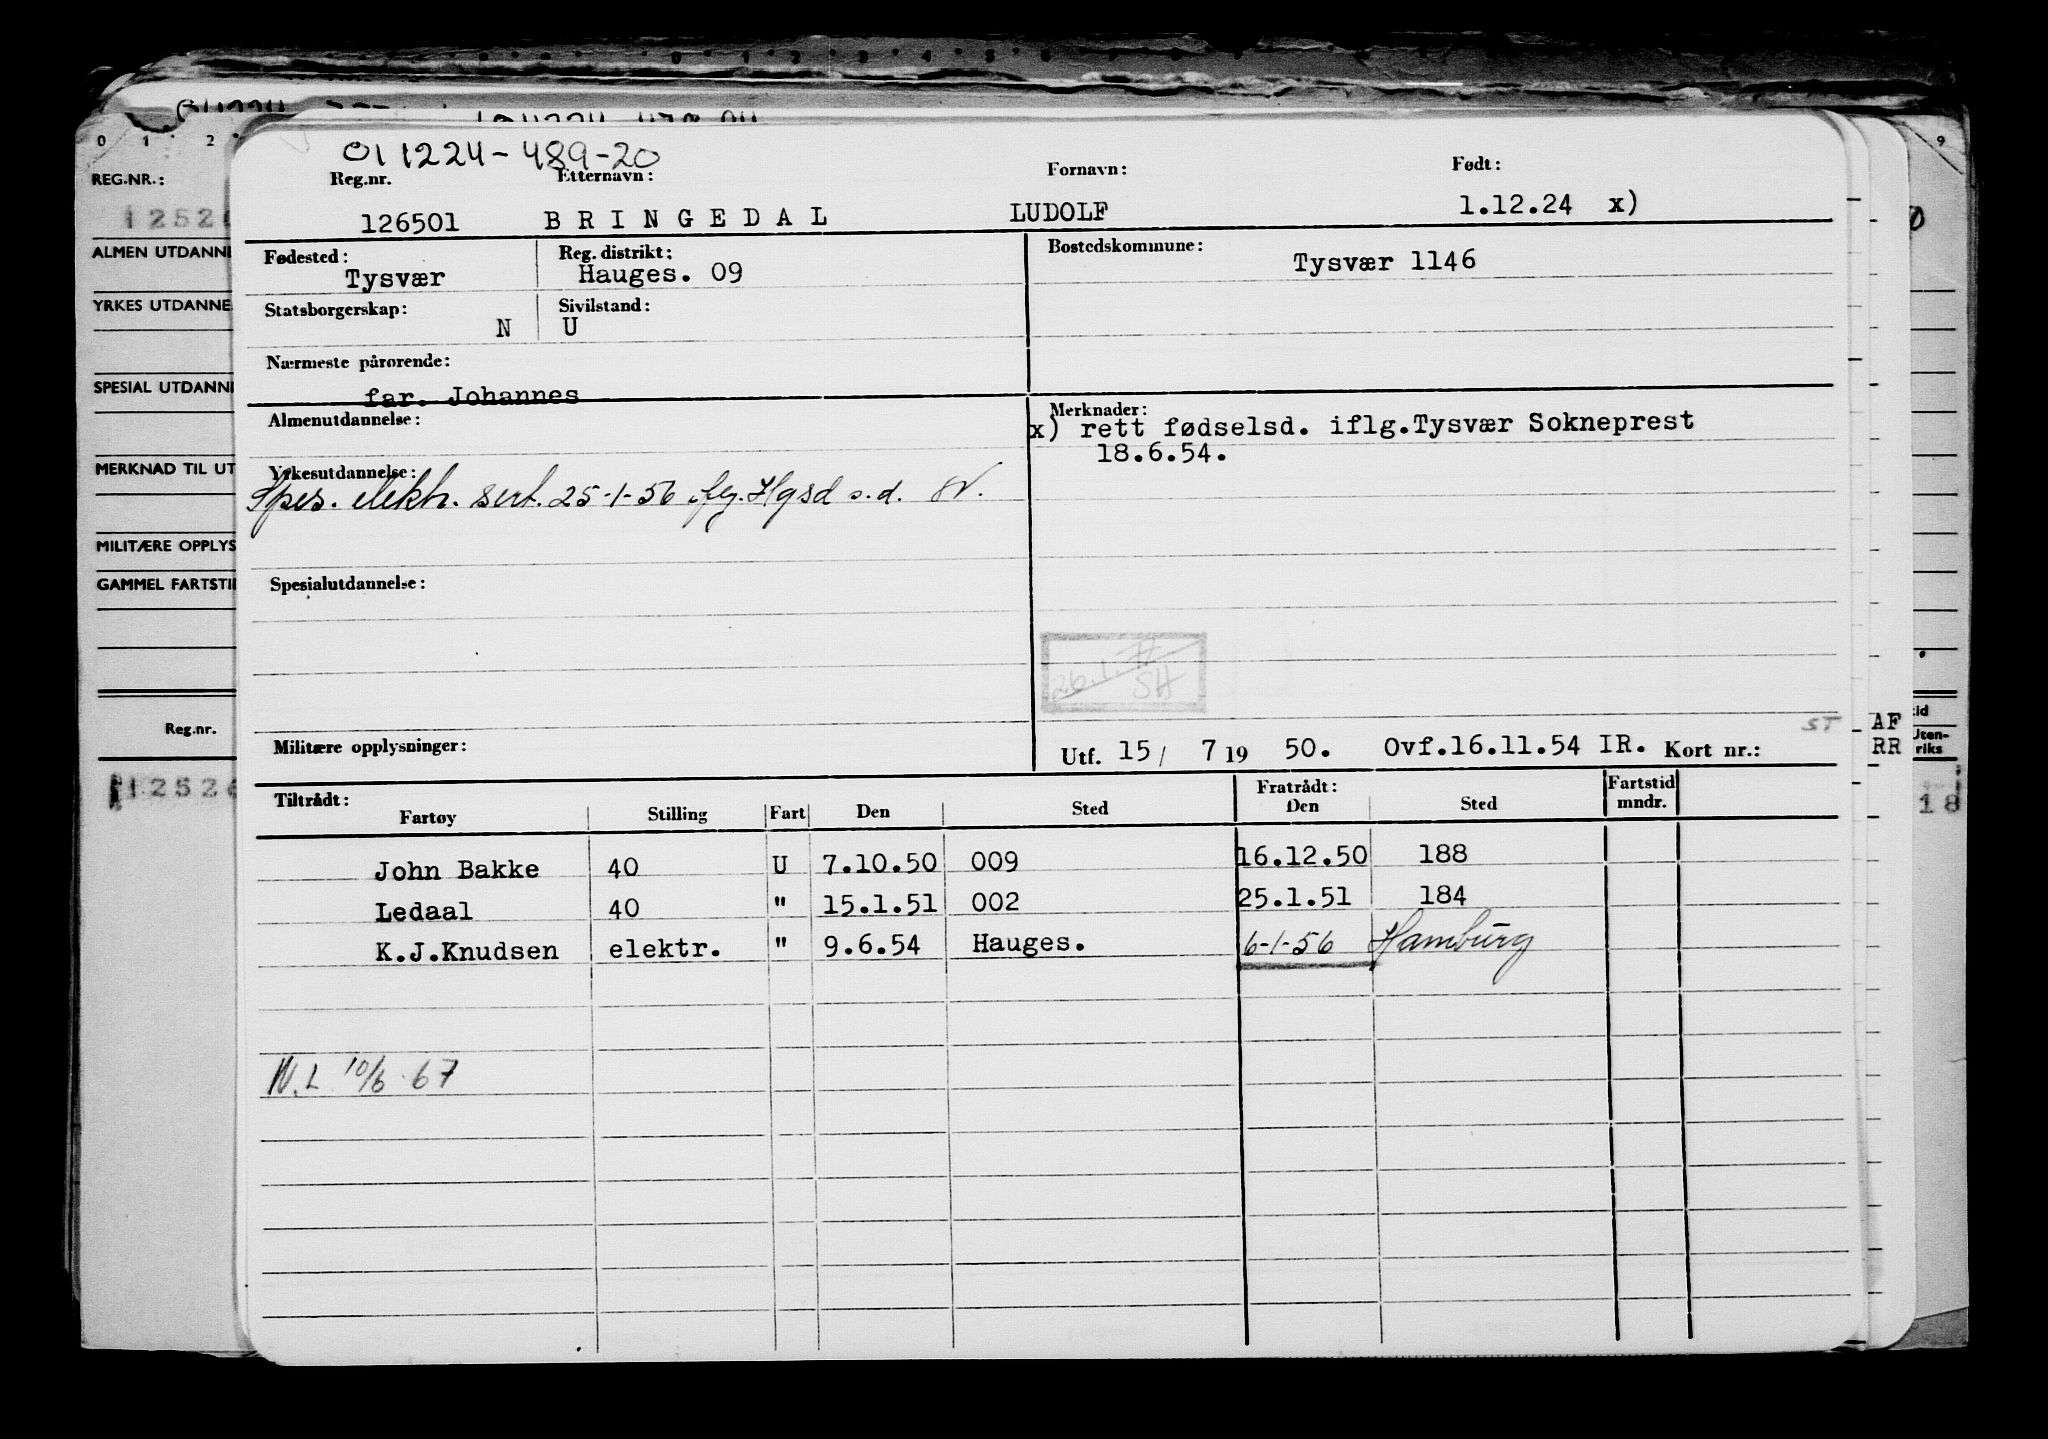 011224-489-20
Reg.nr. Etternavn: Fornavn: Født:
126501 BRINGEDAL LUDOLF 1.12.24 x)
Fødested: Tysvær Reg. distrikt: Hauges. 09 Bostedskommune: Tysvær 1146
Statsborgerskap: N Sivilstand: U
Nærmeste pårørende:
far. Johannes
Almenutdannelse: Merknader:
x) rett fødselsd. iflg.Tysvær Sokneprest
18.6.54.
Yrkesutdannelse:
Spes. elektr. sert. 25-1-56 Hgsd s.d.
Spesialutdannelse:
26.1.
SH
ST
Militære opplysninger: Utf. 15/ 7 19 50. Ovf.16.11.54 IR. Kort nr.:
Tiltrådt: Fratrådt: Fartstid
Fartøy Stilling Fart Den Sted Den Sted mndr.
John Bakke 40 U 7.10.50 009 16.12.50 188
Ledaal 40 " 15.1.51 002 25.1.51 184
K.J.Knudsen elektr. " 9.6.54 Hauges. 6-1-56 Hamburg
N.L. 10/6-67
0 1 2
REG.NR.:
ALMEN UTDANNE
YRKES UTDANNE
SPESIAL UTDANN
MERKNAD TIL UT
MILITÆRE OPPLYS
GAMMEL FARTSTI
Reg.nr.
9
AF
RR
tid
Uten-
riks
18